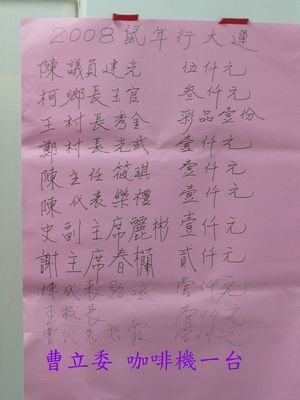 2008鼠年行大運
陳議員建光 伍仟元
柯鄉長玉宦 叁仟元
王村長秀金 彩品壹份
鄭村長光武 壹仟元
陳主任筱琪 壹仟元
陳代表樂禮 壹仟元
史副主席麗彬 壹仟元
謝主席春欄 貳仟元
陳代表 壹仟元
校長 壹仟元
曹代表 霞 壹仟元
曹立委 咖啡機一台